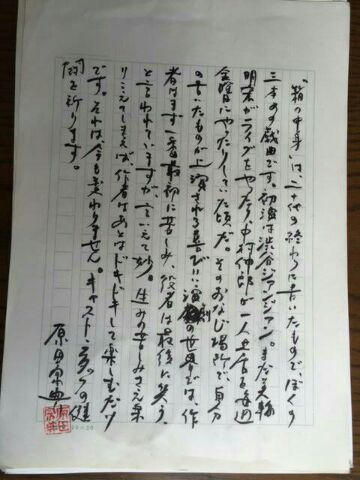 『箱の中身』は、二十代の終わりに書いたもので、ぼくの
三本めの戯曲です。初演は渋谷ジァンジァン。まだ美輪
明宏がライブをやったり、中村伸郎が一人芝居を毎週
金曜日にやったりしていた頃だ。そのおなじ場所で、自分
の書いたものが上演される喜び！演劇の世界では、作
者はまず一番最初に苦しみ、役者は最後に笑う、
と言われていますが、言いえて妙。生みの苦しみさえ乗
りこえてしまえば、作者はあとはドキドキして楽しむだけ
です。それは今も変わりません。キャスト、スタッフの健
闘を祈ります。
原田宗典